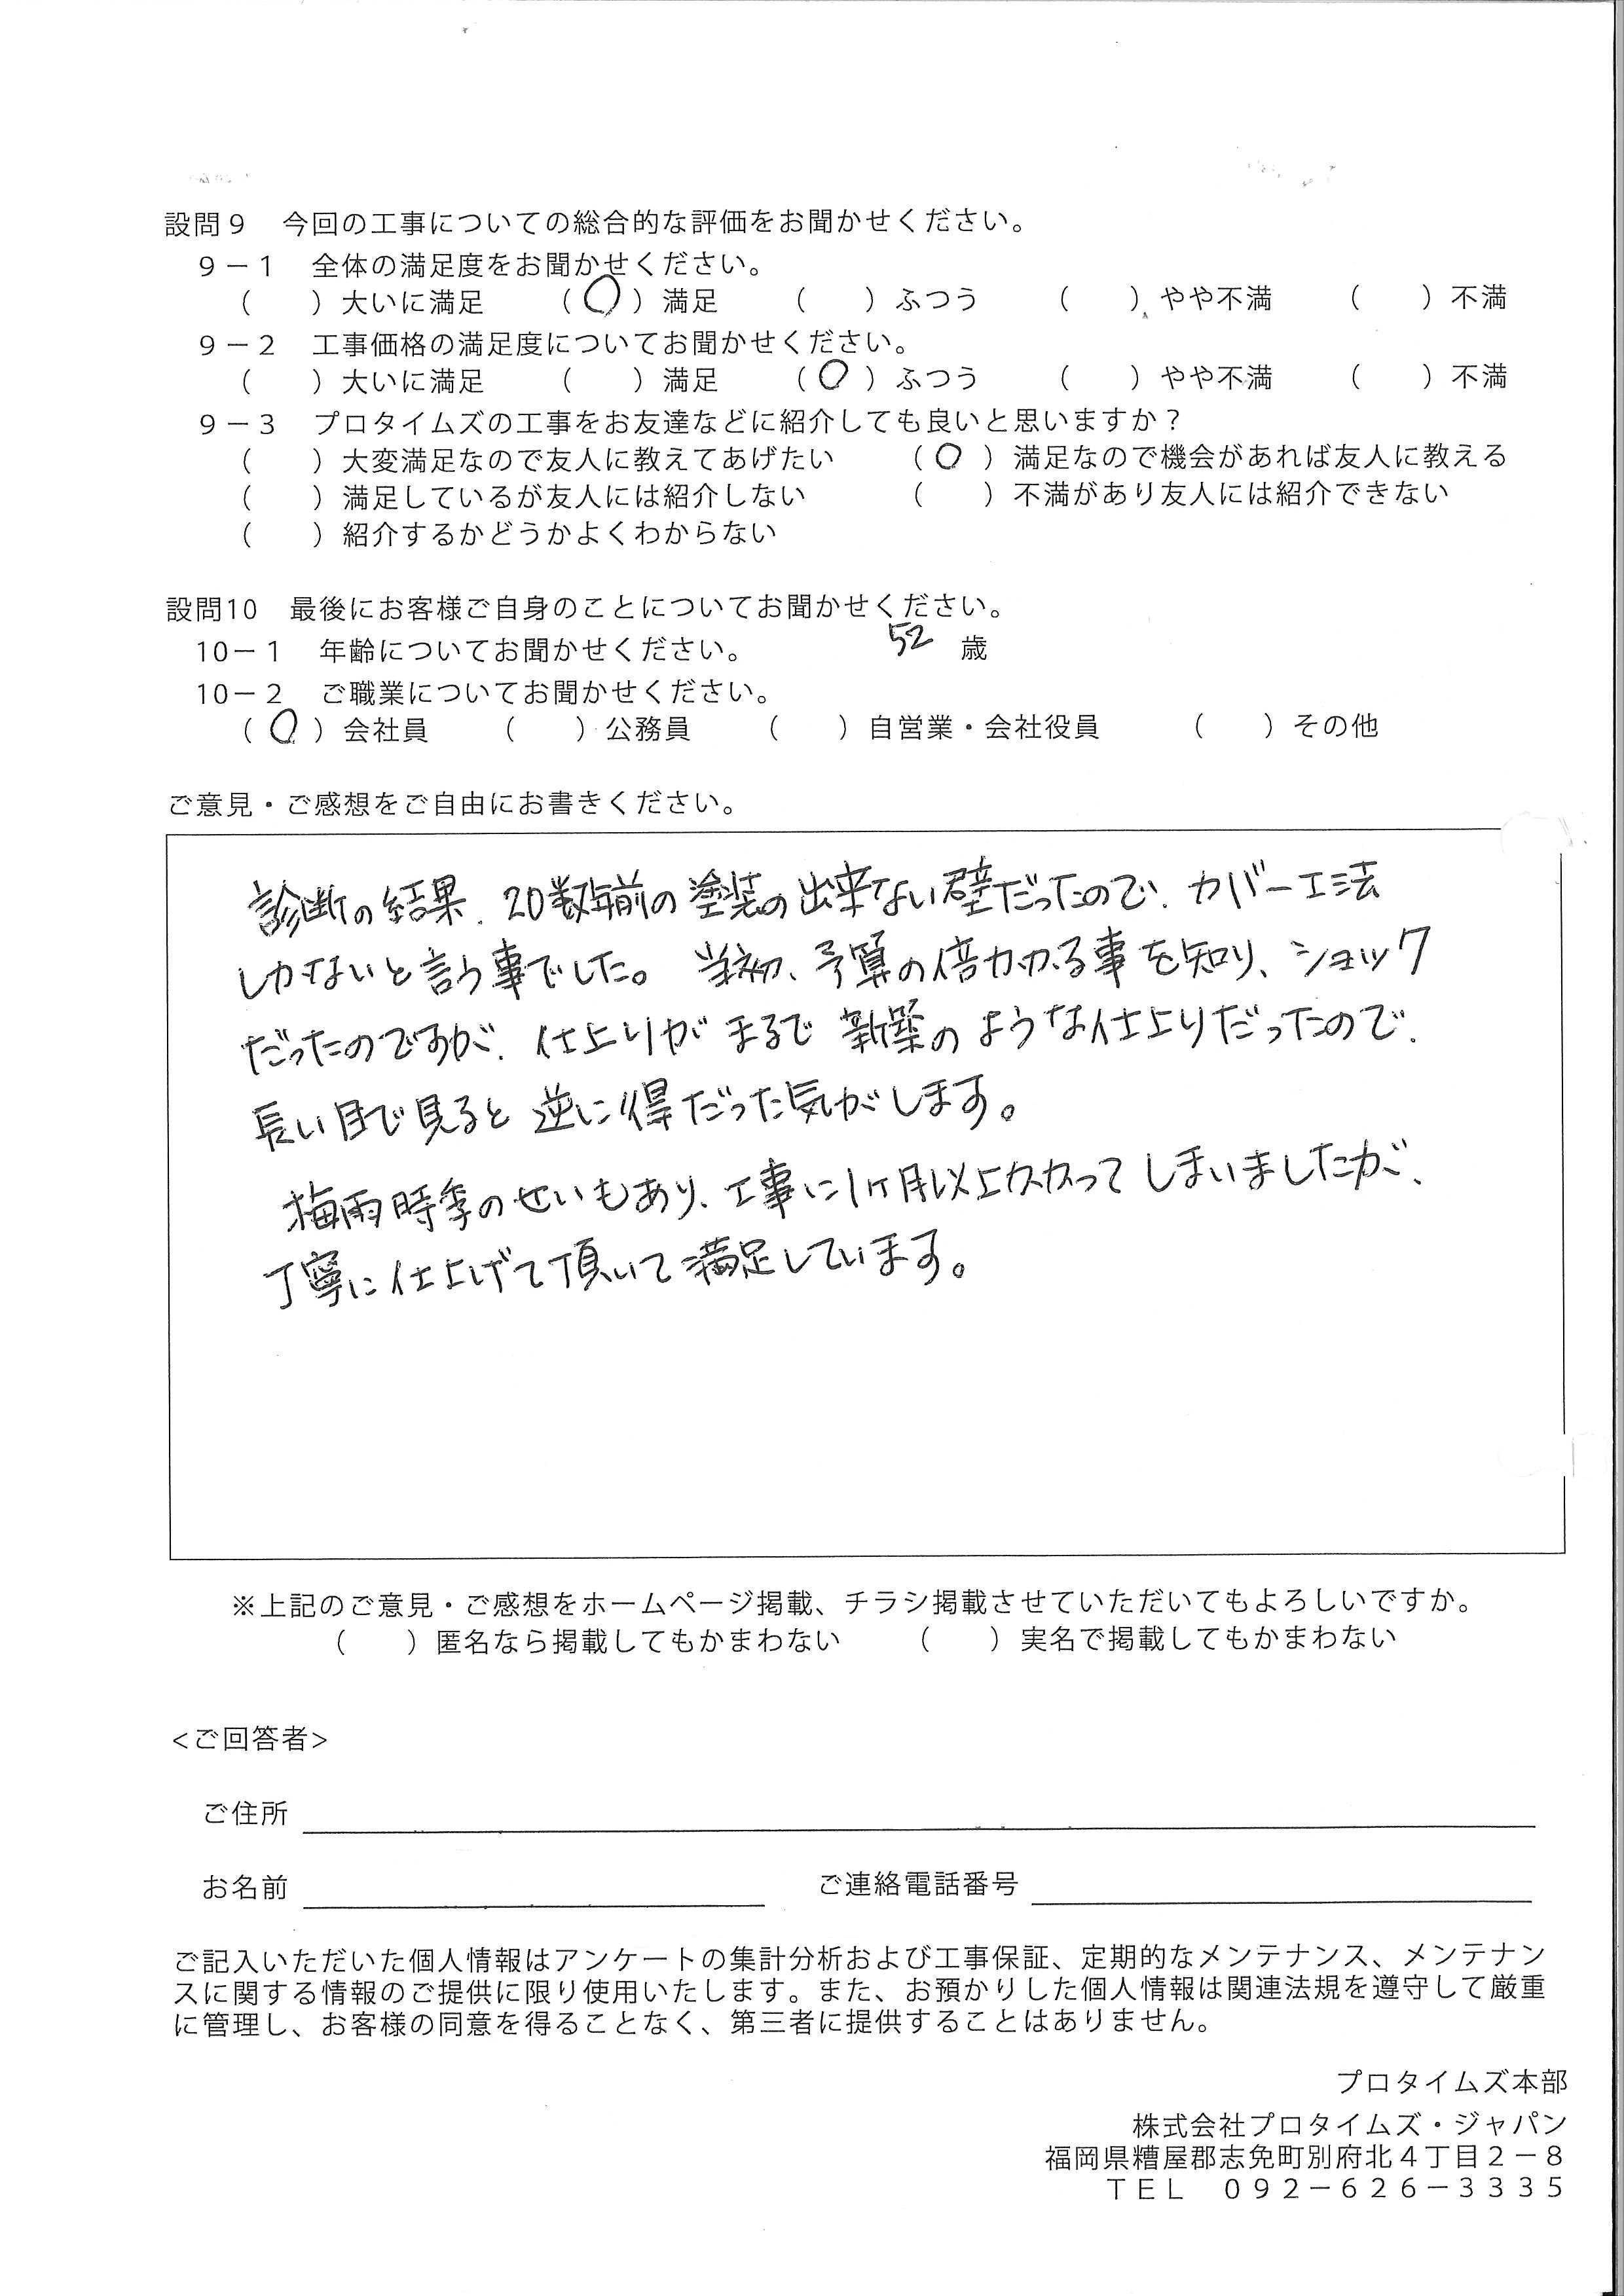 設問９　今回の工事についての総合的な評価をお聞かせください。
９－１　全体の満足度をお聞かせください。
（　　）大いに満足　　（○）満足　　（　　）ふつう　　（　　）やや不満　　（　　）不満
９－２　工事価格の満足度についてお聞かせください。
（　　）大いに満足　　（　　）満足　　（○）ふつう　　（　　）やや不満　　（　　）不満
９－３　プロタイムズの工事をお友達などに紹介しても良いと思いますか？
（　　）大変満足なので友人に教えてあげたい　　（○）満足なので機会があれば友人に教える
（　　）満足しているが友人には紹介しない　　（　　）不満があり友人には紹介できない
（　　）紹介するかどうかよくわからない
設問10　最後にお客様ご自身のことについてお聞かせください。
10－１　年齢についてお聞かせください。　　52　歳
10－２　ご職業についてお聞かせください。
（○）会社員　　（　　）公務員　　（　　）自営業・会社役員　　（　　）その他
ご意見・ご感想をご自由にお書きください。
診断の結果、20数年前の塗装の出来ない壁だったので、カバー工法
しかないと言う事でした。当初、予算の倍かかる事を知り、ショック
だったのですが、仕上りがまるで新築のような仕上りだったので、
長い目で見ると逆に得だった気がします。
梅雨時季のせいもあり、工事に1ヶ月以上かかってしまいましたが、
丁寧に仕上げて頂いて満足しています。
※上記のご意見・ご感想をホームページ掲載、チラシ掲載させていただいてもよろしいですか。
（　　）匿名なら掲載してもかまわない　　（　　）実名で掲載してもかまわない
<ご回答者>
ご住所
お名前　　ご連絡電話番号
ご記入いただいた個人情報はアンケートの集計分析および工事保証、定期的なメンテナンス、メンテナン
スに関する情報のご提供に限り使用いたします。また、お預かりした個人情報は関連法規を遵守して厳重
に管理し、お客様の同意を得ることなく、第三者に提供することはありません。
プロタイムズ本部
株式会社プロタイムズ・ジャパン
福岡県糟屋郡志免町別府北４丁目２－８
ＴＥＬ　０９２－６２６－３３３５